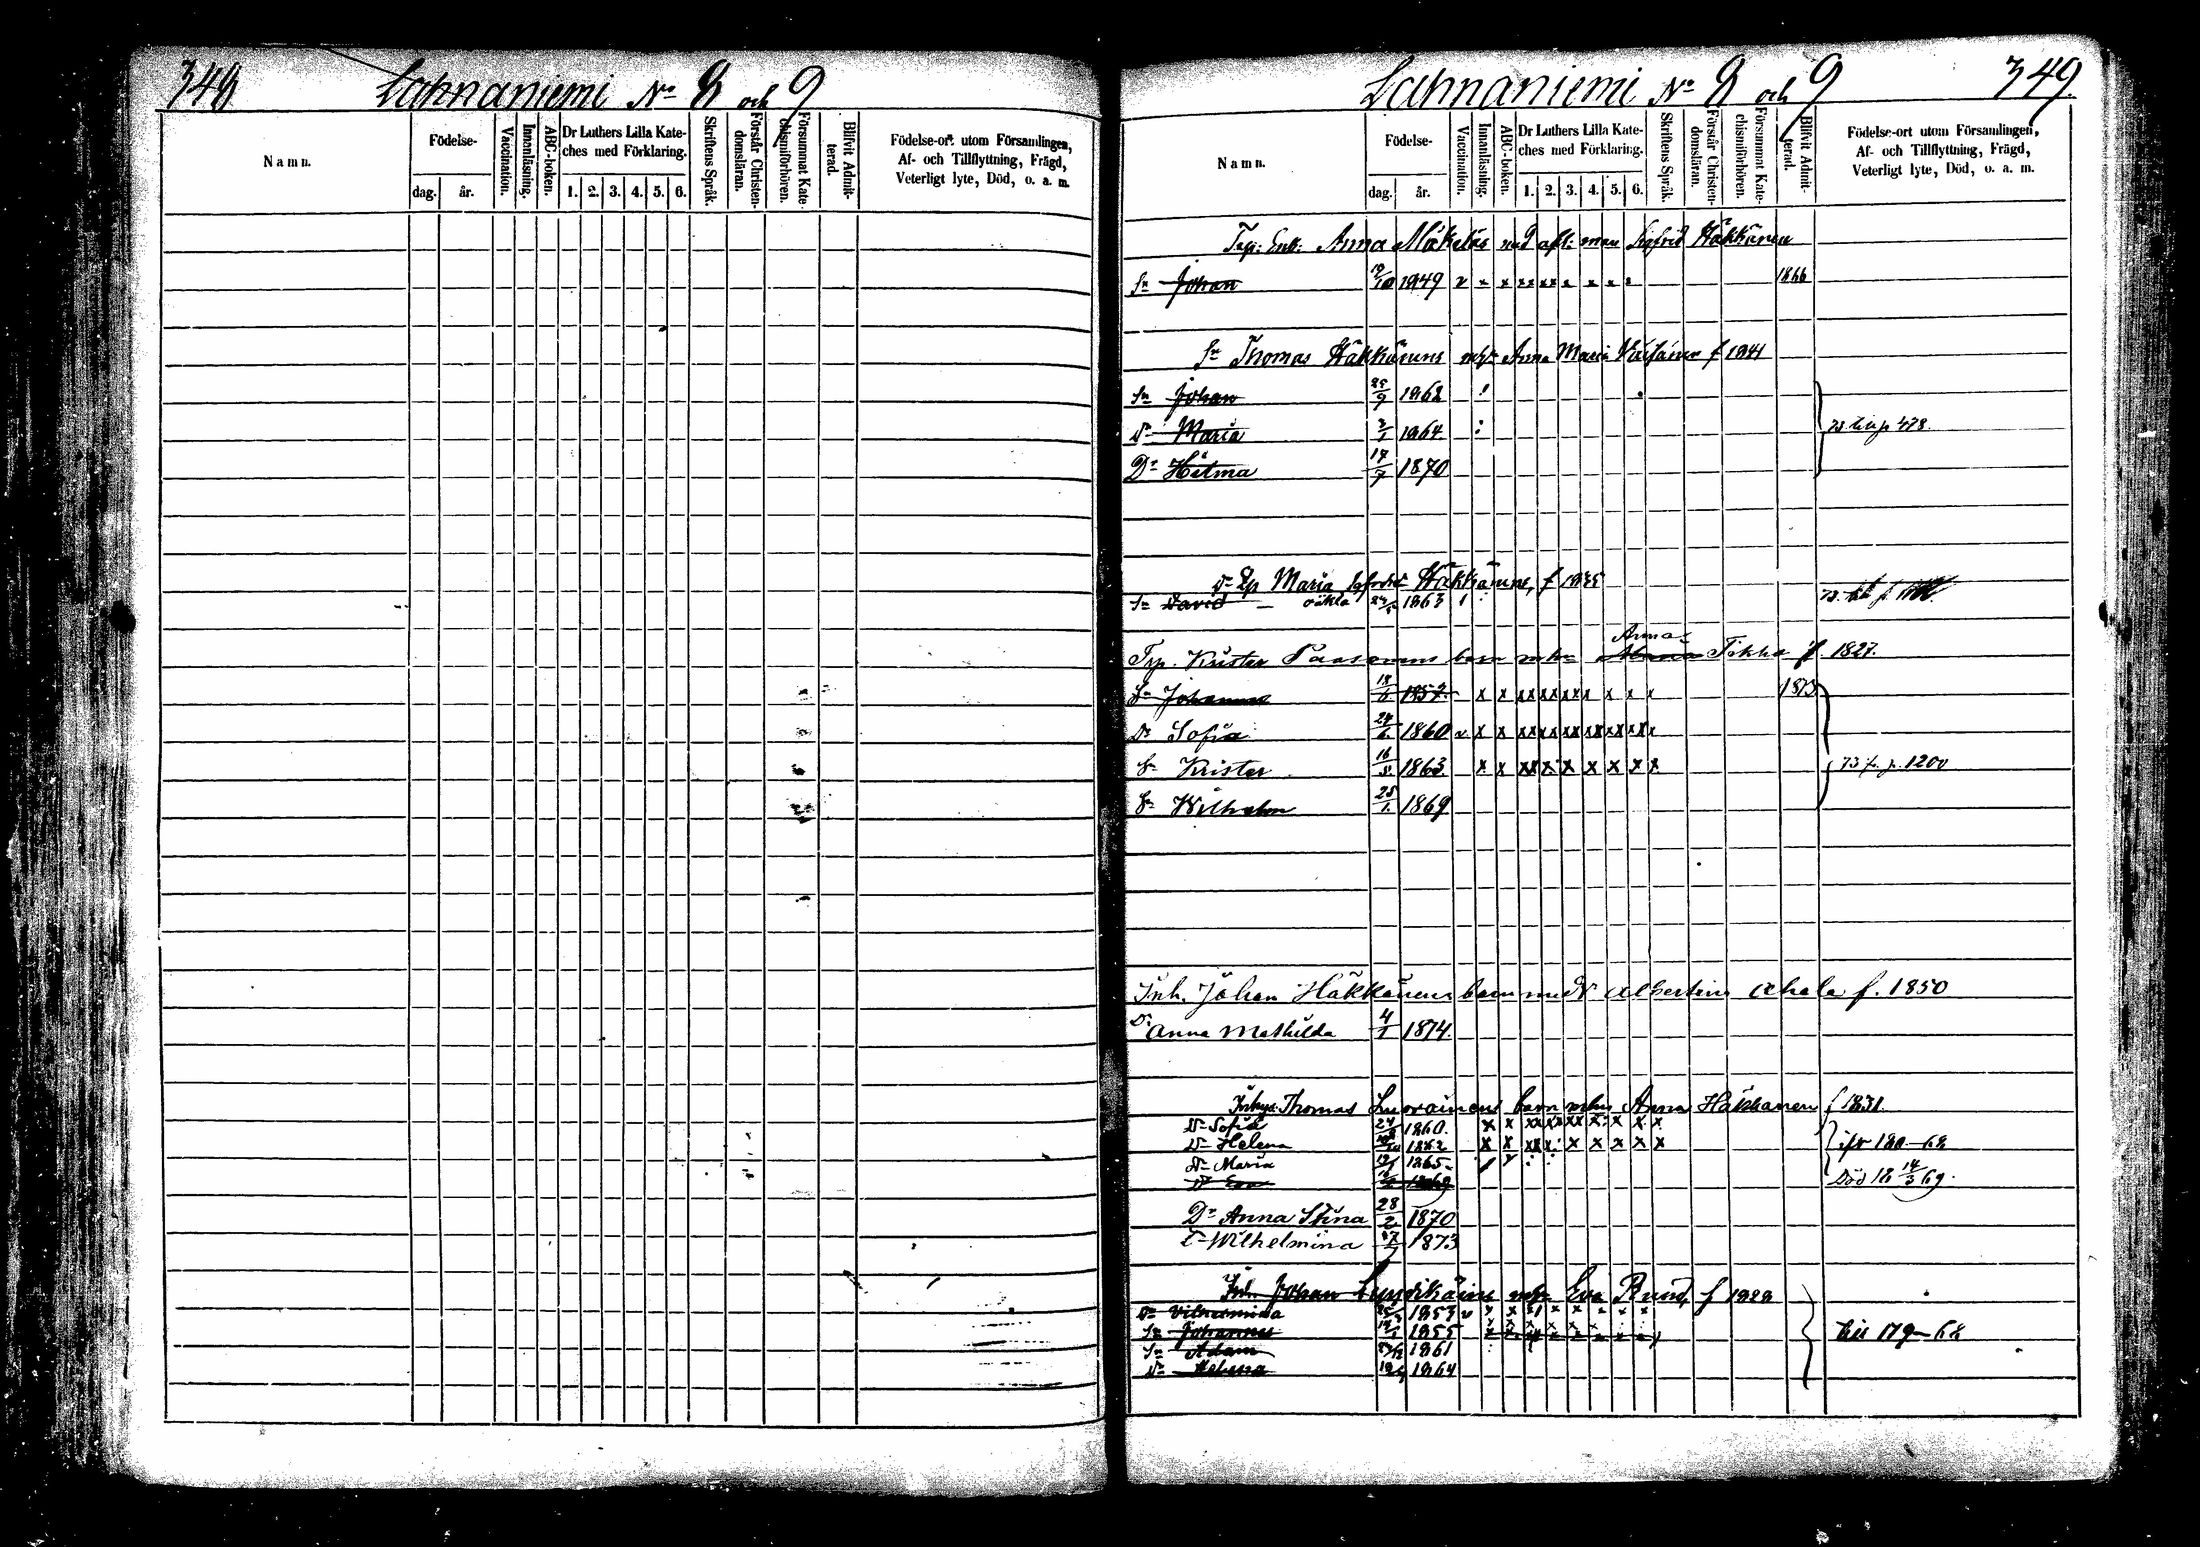 348 Lahnaniemi No 8 och 9
Namn.
Födelse-
dag. år.
Vaccination.
Innanläsning.
ABC-boken.
Dr Luthers Lilla Kate-
ches med Förklaring.
1. 2. 3. 4. 5. 6.
Skriftens Språk.
Förstår Christen-
domsläran.
Försummat Kate-
chismiförhören.
Blifvit Admit-
terad.
Födelse-ort utom Församlingen,
Af- och Tillflyttning, Frägd,
Veterligt lyte, Död, o. a. m.
Lahnaniemi No 8 och 9 349.
Namn.
Födelse-
dag. år.
Vaccination.
Innanläsning.
ABC-boken.
Dr Luthers Lilla Kate-
ches med Förklaring.
1. 2. 3. 4. 5. 6.
Skriftens Språk.
Förstår Christen-
domsläran.
Försummat Kate-
chismiförhören.
Blifvit Admit-
terad.
Födelse-ort utom Församlingen,
Af- och Tillflyttning, Frägd,
Veterligt lyte, Död, o. a. m.
Enk: Anna man Sigfrid Häkkänen
Sn Johan 1849 v x x x x x x x x x 1866
Sn Thomas Häkkänens Anna Maria f 1841
Sn Johan 25/9 1862
Dr Maria 1864
Dr Hilma 17/7 1870
Maria Häkkänens, f 1835
Sn David oäkta 1863
Anna
Krister Paasonens barn Tikka f. 1827.
Sn Johannes 1857 x x x x x x x x x x x 1873
Dr Sofia 24/6 1860 v x x x x x x x x x x x
Sn Krister 1863 x x x x x x x x x x p. 1200
Sn Wilhelm 25/1 1869
Inh. Johan Häkkänens barn med Albertina f. 1850
Dr Anna Mathilda 4/1 1874.
Thomas barn Anna Häkkänen f 1831.
Dr Sofia 1860.
Dr Helena 1862
Dr Maria 1865
Dr Eva Död 18 14/3 69.
Dr Anna Stina 28/2 1870
Dr Wilhelmina 1873
Inh. Johan Eva f 1828
Dr Vilhelmina 1853 v
Sn Johannes 1855 179-68
Sn Adam 1861
Dr Helena 1864